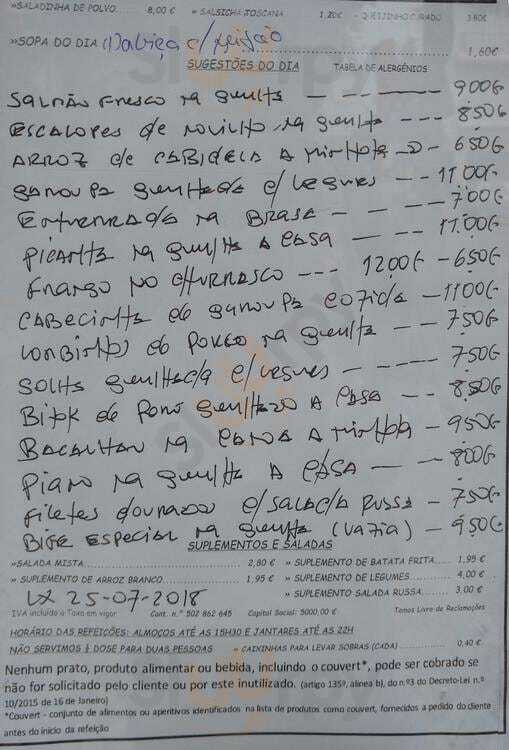 »SALADINHA DE POLVO........ 8,00 € » SALSICHA TOSCANA ........ 1,20€ - QUEIJINHO CURADO 3.80€
»SOPA DO DIA (Nabiça c/ feijão 1,60€
SUGESTÕES DO DIA TABELA DE ALERGÉNIOS
Salmão fresco na grelha - - - 900€
Escalopes de novilho na grelha - - - 850€
Arroz de Cabidela a minhota - 650€
Garoupa grelhada c/ legumes - - 11.00€
Entremeada na Brasa - - - 700€
Picanha na grelha a casa - - 11.00€
Frango no churrasco - - - 1200€ - 650€
Cabecinha de garoupa cozida - 1100€
Lombinhos de Porco na grelha - - 750€
Solha grelhada c/ legumes - - 750€
Bife de Peru grelhado a casa - - 850€
Bacalhau na canoa a minhota - 950€
Piano na grelha a casa - - 800€
Filetes dourado c/ salada russa - 750€
Bife especial na grelha (vazia) - 950€
SUPLEMENTOS E SALADAS
»SALADA MISTA........ 2,80 € » SUPLEMENTO DE BATATA FRITA.... 1.95 €
» SUPLEMENTO DE ARROZ BRANCO........ 1.95 € » SUPLEMENTO DE LEGUMES........ 4,00 €
LX 25-07-2018 » SUPLEMENTO SALADA RUSSA........ 3,00 €
IVA incluído a Taxa em vigor Cont. n.º 502 862 645 Capital Social: 5000,00 € Temos Livro de Reclamações
HORÁRIO DAS REFEIÇÕES: ALMOÇOS ATÉ AS 15H30 E JANTARES ATÉ AS 22H
NÃO SERVIMOS ½ DOSE PARA DUAS PESSOAS » CAIXINHAS PARA LEVAR SOBRAS (CADA)........ 0,40 €
Nenhum prato, produto alimentar ou bebida, incluindo o couvert*, pode ser cobrado se
não for solicitado pelo cliente ou por este inutilizado. (artigo 135º, alinea b), do n.º3 do Decreto-Lei n.º
10/2015 de 16 de Janeiro)
*Couvert - conjunto de alimentos ou aperitivos identificados na lista de produtos como couvert, fornecidos a pedido do cliente
antes do início da refeição